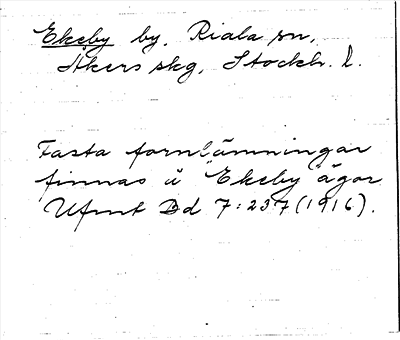 Ekeby by, Riala sn,
Åkers skg, Stockh. l.
Fasta fornlämningar
finnas å Ekeby ägor
Ufmt Bd 7:237 (1916).